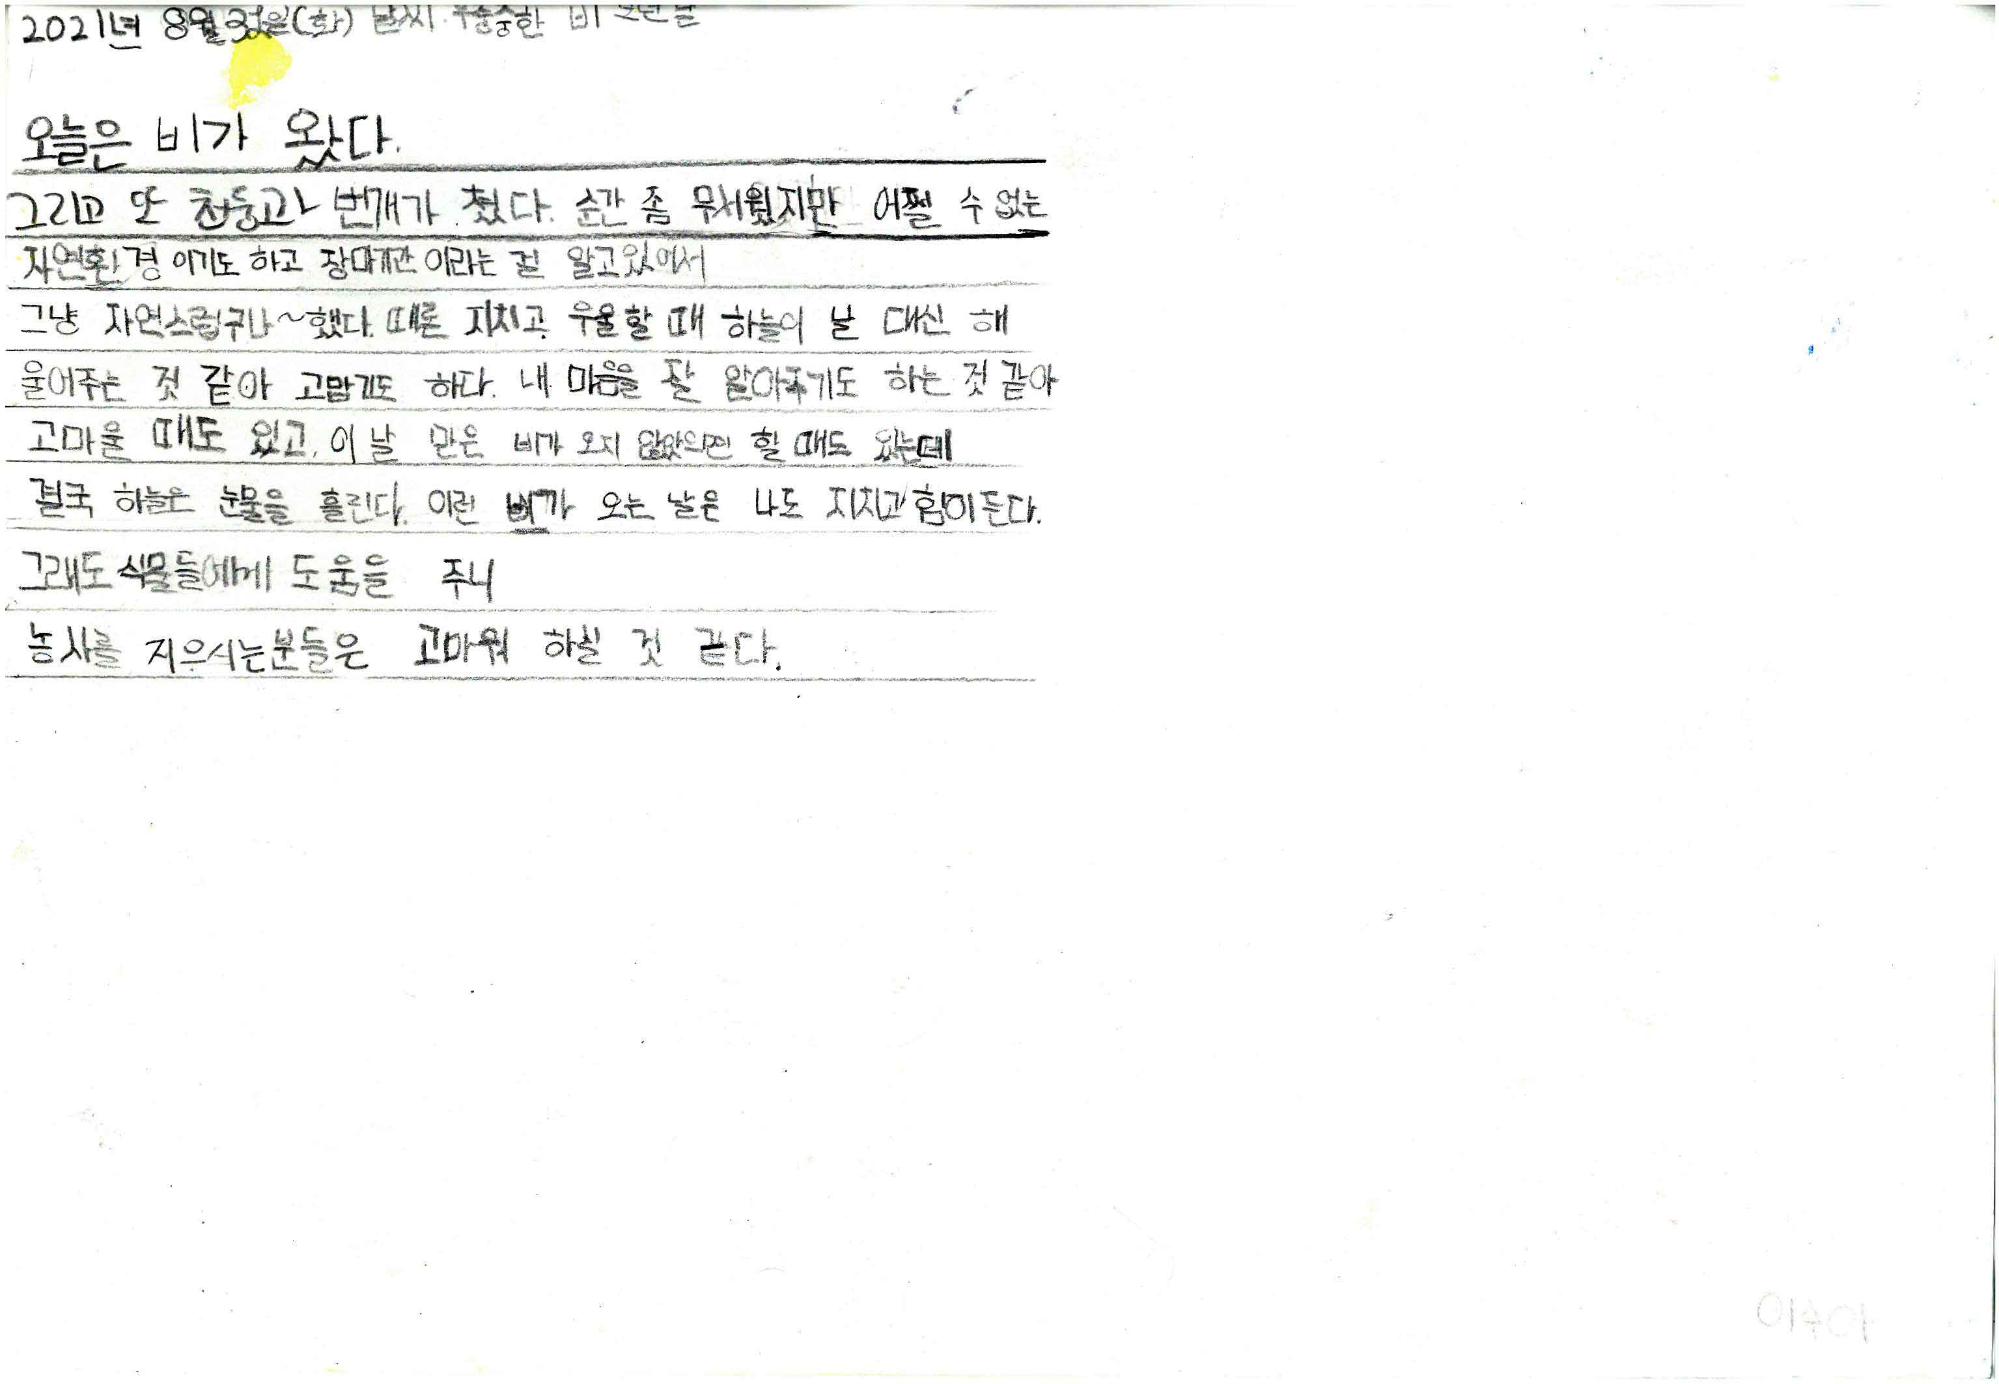 2021년 8월 31일(화) 날씨: 우중충한 비 오는 날
오늘은 비가 왔다.
그리고 또 천둥과 번개가 쳤다. 순간 좀 무서웠지만 어쩔 수 없는
자연환경 이기도 하고 장마기간 이라는 걸 알고있어서
그냥 자연스럽구나~했다. 때론 지치고 우울할 때 하늘이 날 대신 해
울어주는 것 같아 고맙기도 하다. 내 마음을 잘 알아주기도 하는 것 같아
고마울 때도 있고, 이 날 만은 비가 오지 않았으면 할 때도 있는데
결국 하늘은 눈물을 흘린다. 이런 비가 오는 날은 나도 지치고 힘이 든다.
그래도 식물들에게 도움을 주니
농사를 지으시는분들은 고마워 하실 것 같다.
이수아